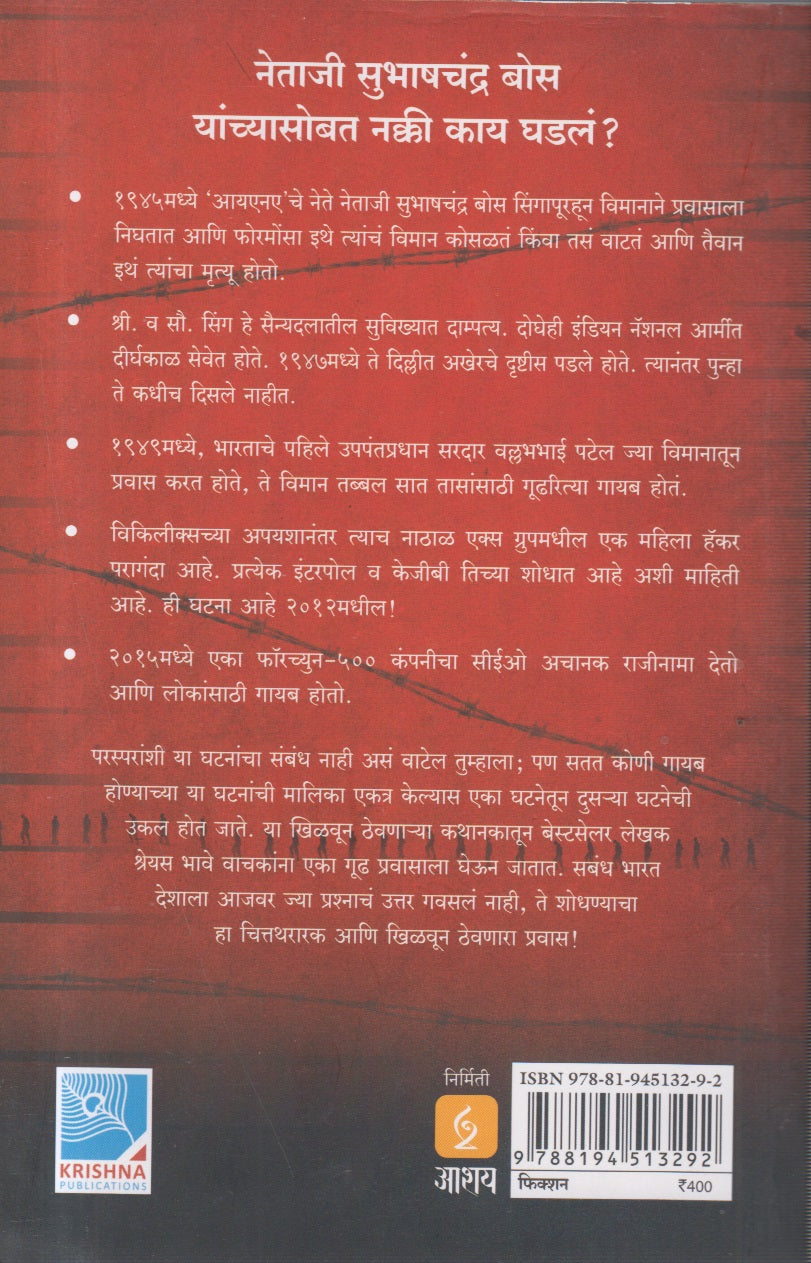 नेताजी सुभाषचंद्र बोस
यांच्यासोबत नक्की काय घडलं?
• १९४५मध्ये ‘आयएनए’चे नेते नेताजी सुभाषचंद्र बोस सिंगापूरहून विमानाने प्रवासाला
निघतात आणि फोरमोंसा इथे त्यांचं विमान कोसळतं किंवा तसं वाटतं आणि तैवान
इथं त्यांचा मृत्यू होतो.
• श्री. व सौ. सिंग हे सैन्यदलातील सुविख्यात दाम्पत्य. दोघेही इंडियन नॅशनल आर्मीत
दीर्घकाळ सेवेत होते. १९४७मध्ये ते दिल्लीत अखेरचे दृष्टीस पडले होते. त्यानंतर पुन्हा
ते कधीच दिसले नाहीत.
• १९४९मध्ये, भारताचे पहिले उपपंतप्रधान सरदार वल्लभभाई पटेल ज्या विमानातून
प्रवास करत होते, ते विमान तब्बल सात तासांसाठी गूढरित्या गायब होतं.
• विकिलीक्सच्या अपयशानंतर त्याच नाठाळ एक्स ग्रुपमधील एक महिला हॅकर
परागंदा आहे. प्रत्येक इंटरपोल व केजीबी तिच्या शोधात आहे अशी माहिती
आहे. ही घटना आहे २०१२मधील!
• २०१५मध्ये एका फॉरच्युन-५०० कंपनीचा सीईओ अचानक राजीनामा देतो
आणि लोकांसाठी गायब होतो.
परस्परांशी या घटनांचा संबंध नाही असं वाटेल तुम्हाला; पण सतत कोणी गायब
होण्याच्या या घटनांची मालिका एकत्र केल्यास एका घटनेतून दुसऱ्या घटनेची
उकल होत जाते. या खिळवून ठेवणाऱ्या कथानकातून बेस्टसेलर लेखक
श्रेयस भावे वाचकांना एका गूढ प्रवासाला घेऊन जातात. सबंध भारत
देशाला आजवर ज्या प्रश्नाचं उत्तर गवसलं नाही, ते शोधण्याचा
हा चित्तथरारक आणि खिळवून ठेवणारा प्रवास!
KRISHNA
PUBLICATIONS
निर्मिती
आशय
ISBN 978-81-945132-9-2
9 788194 513292
फिक्शन ₹400